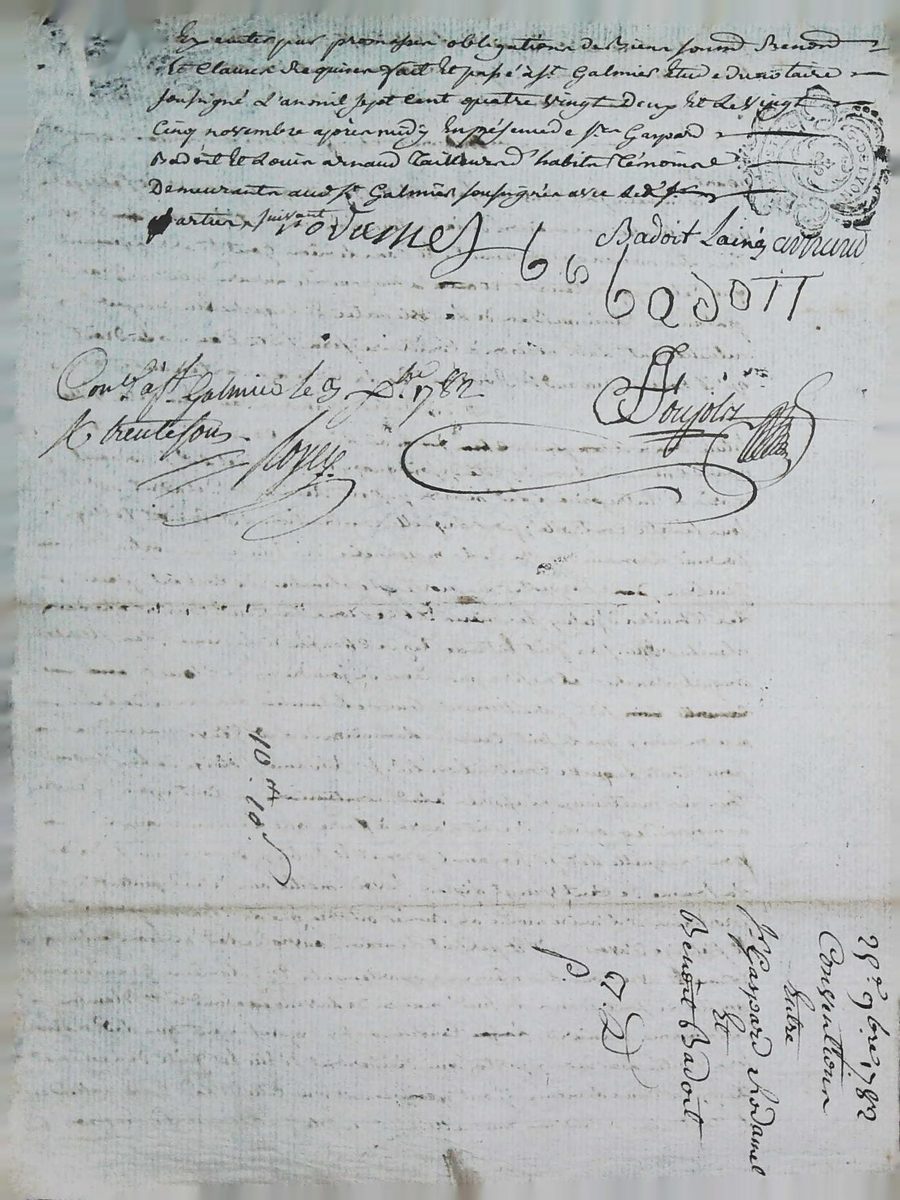 Executer par promesse obligations de Biens soumis Renond
et Clauses Requises fait Et passé a St Galmier Etude du notaire
soussigné L'an mil sept cent quatre vingt Deux Et Le Vingt
Cinq novembre apres midy En présence de Sr Gaspard
Badoit Et Louis arnaud Tailleurs d'habits Témoins
Demeurants aud St Galmier soussignés avec lesd
parties suivant
Badoit Lainé arnaud
b b bADOIT
Conlé a St Galmier le 3 Xbre 1782
R trente sous
10 tt 10 s
25e 9bre 1782
Convention
Entre
Sr Gaspard Rodamel
Et
Benoit Badoit